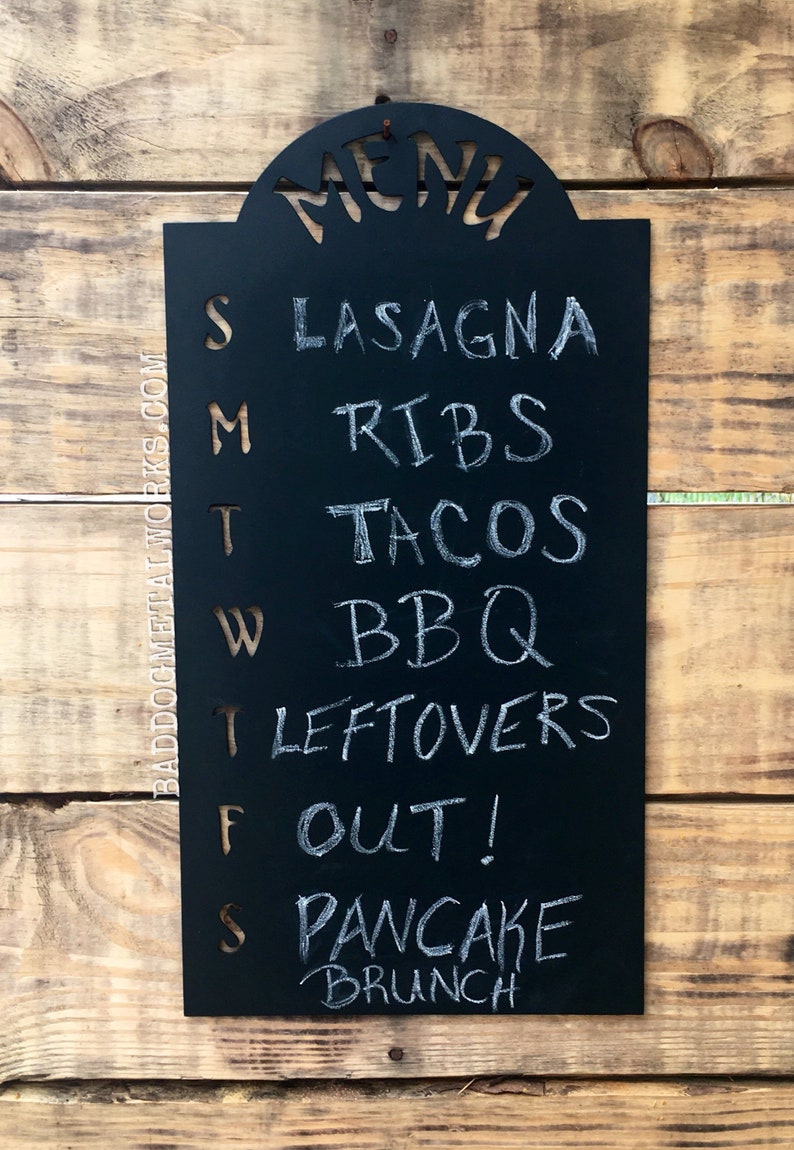 MENU
S LASAGNA
M RIBS
T TACOS
W BBQ
T LEFTOVERS
F OUT!
S PANCAKE
BRUNCH
BADDOGMETALWORKS.COM